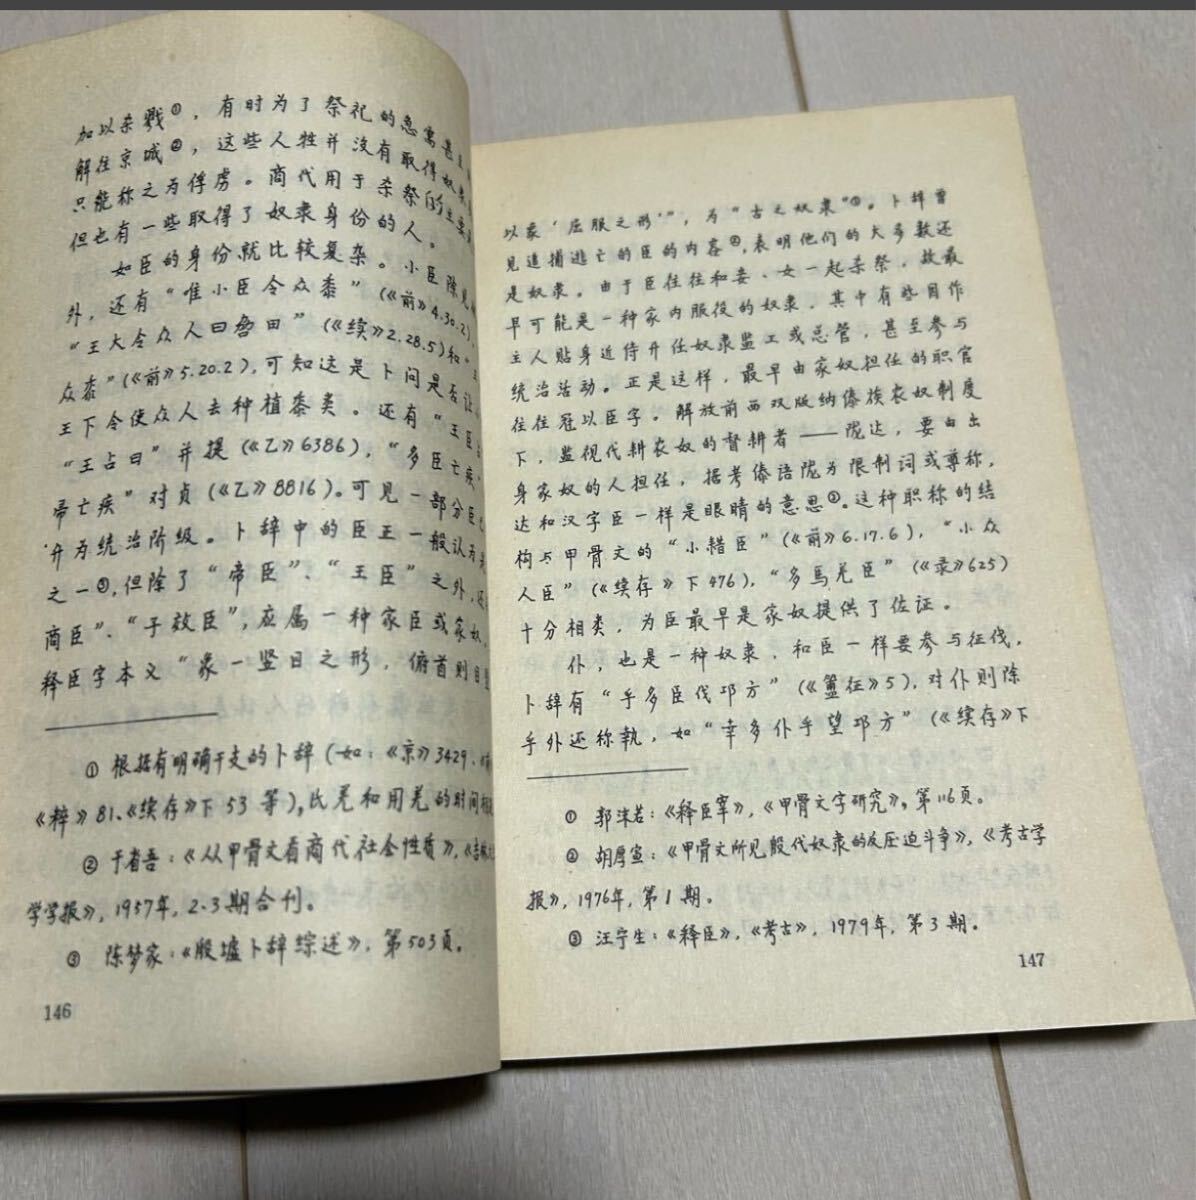 加以杀戮①，有时为了祭祀的急需甚至
解往京城②，这些人牲并没有取得奴隶
只能称之为俘虏。商代用于杀祭的主要
但也有一些取得了奴隶身份的人。
如臣的身份就比较复杂。小臣除见
外，还有“唯小臣令众黍”（《前》4.30.2），
“王大令众人曰劦田”（《续》2.28.5)和“
众黍”(《前》5.20.2)，可知这是卜问是否让
王下令使众人去种植黍类。还有“王臣占
“王占曰”并提(《乙》6386)，“多臣亡疾
帚亡疾”对贞(《乙》8816)。可见一部分臣
升为统治阶级。卜辞中的臣正一般认为
之一③，但除了“帝臣”、“王臣”之外，还
商臣”、“子效臣”，应属一种家臣或家奴。
释臣字本义“象一竖目之形，俯首则目竖
① 根据有明确干支的卜辞（如：《京》3429、
《粹》81、《续存》下53等)，比羌和用羌的时间相
② 于省吾：《从甲骨文看商代社会性质》，《
学学报》，1957年，2·3期合刊。
③ 陈梦家：《殷墟卜辞综述》，第503页。
146
以象‘屈服之形’”，为“古之奴隶”①。卜辞曾
见追捕逃亡的臣的内容②，表明他们的大多数还
是奴隶。由于臣往往和妾、女一起杀祭，故最
早可能是一种家内服役的奴隶，其中有些因作
主人贴身近侍升任奴隶监工或总管，甚至参与
统治活动。正是这样，最早由家奴担任的职官
往往冠以臣字。解放前西双版纳傣族农奴制度
下，监视代耕农奴的督耕者——陇达，要由出
身家奴的人担任，据考傣语陇为限制词或尊称，
达和汉字臣一样是眼睛的意思③。这种职称的结
构与甲骨文的“小耤臣”(《前》6.17.6)，“小众
人臣”(《续存》下476)，“多馬羌臣”(《录》625)
十分相类，为臣最早是家奴提供了佐证。
仆，也是一种奴隶，和臣一样要参与征伐，
卜辞有“乎多臣伐邛方”(《簠征》5)，对仆则除
乎外还称執，如“幸多仆乎望邛方”(《续存》下
① 郭沫若：《释臣宰》，《甲骨文字研究》，第116页。
② 胡厚宣：《甲骨文所见殷代奴隶的反压迫斗争》，《考古学
报》，1976年，第1期。
③ 汪宁生：《释臣》，《考古》，1979年，第3期。
147